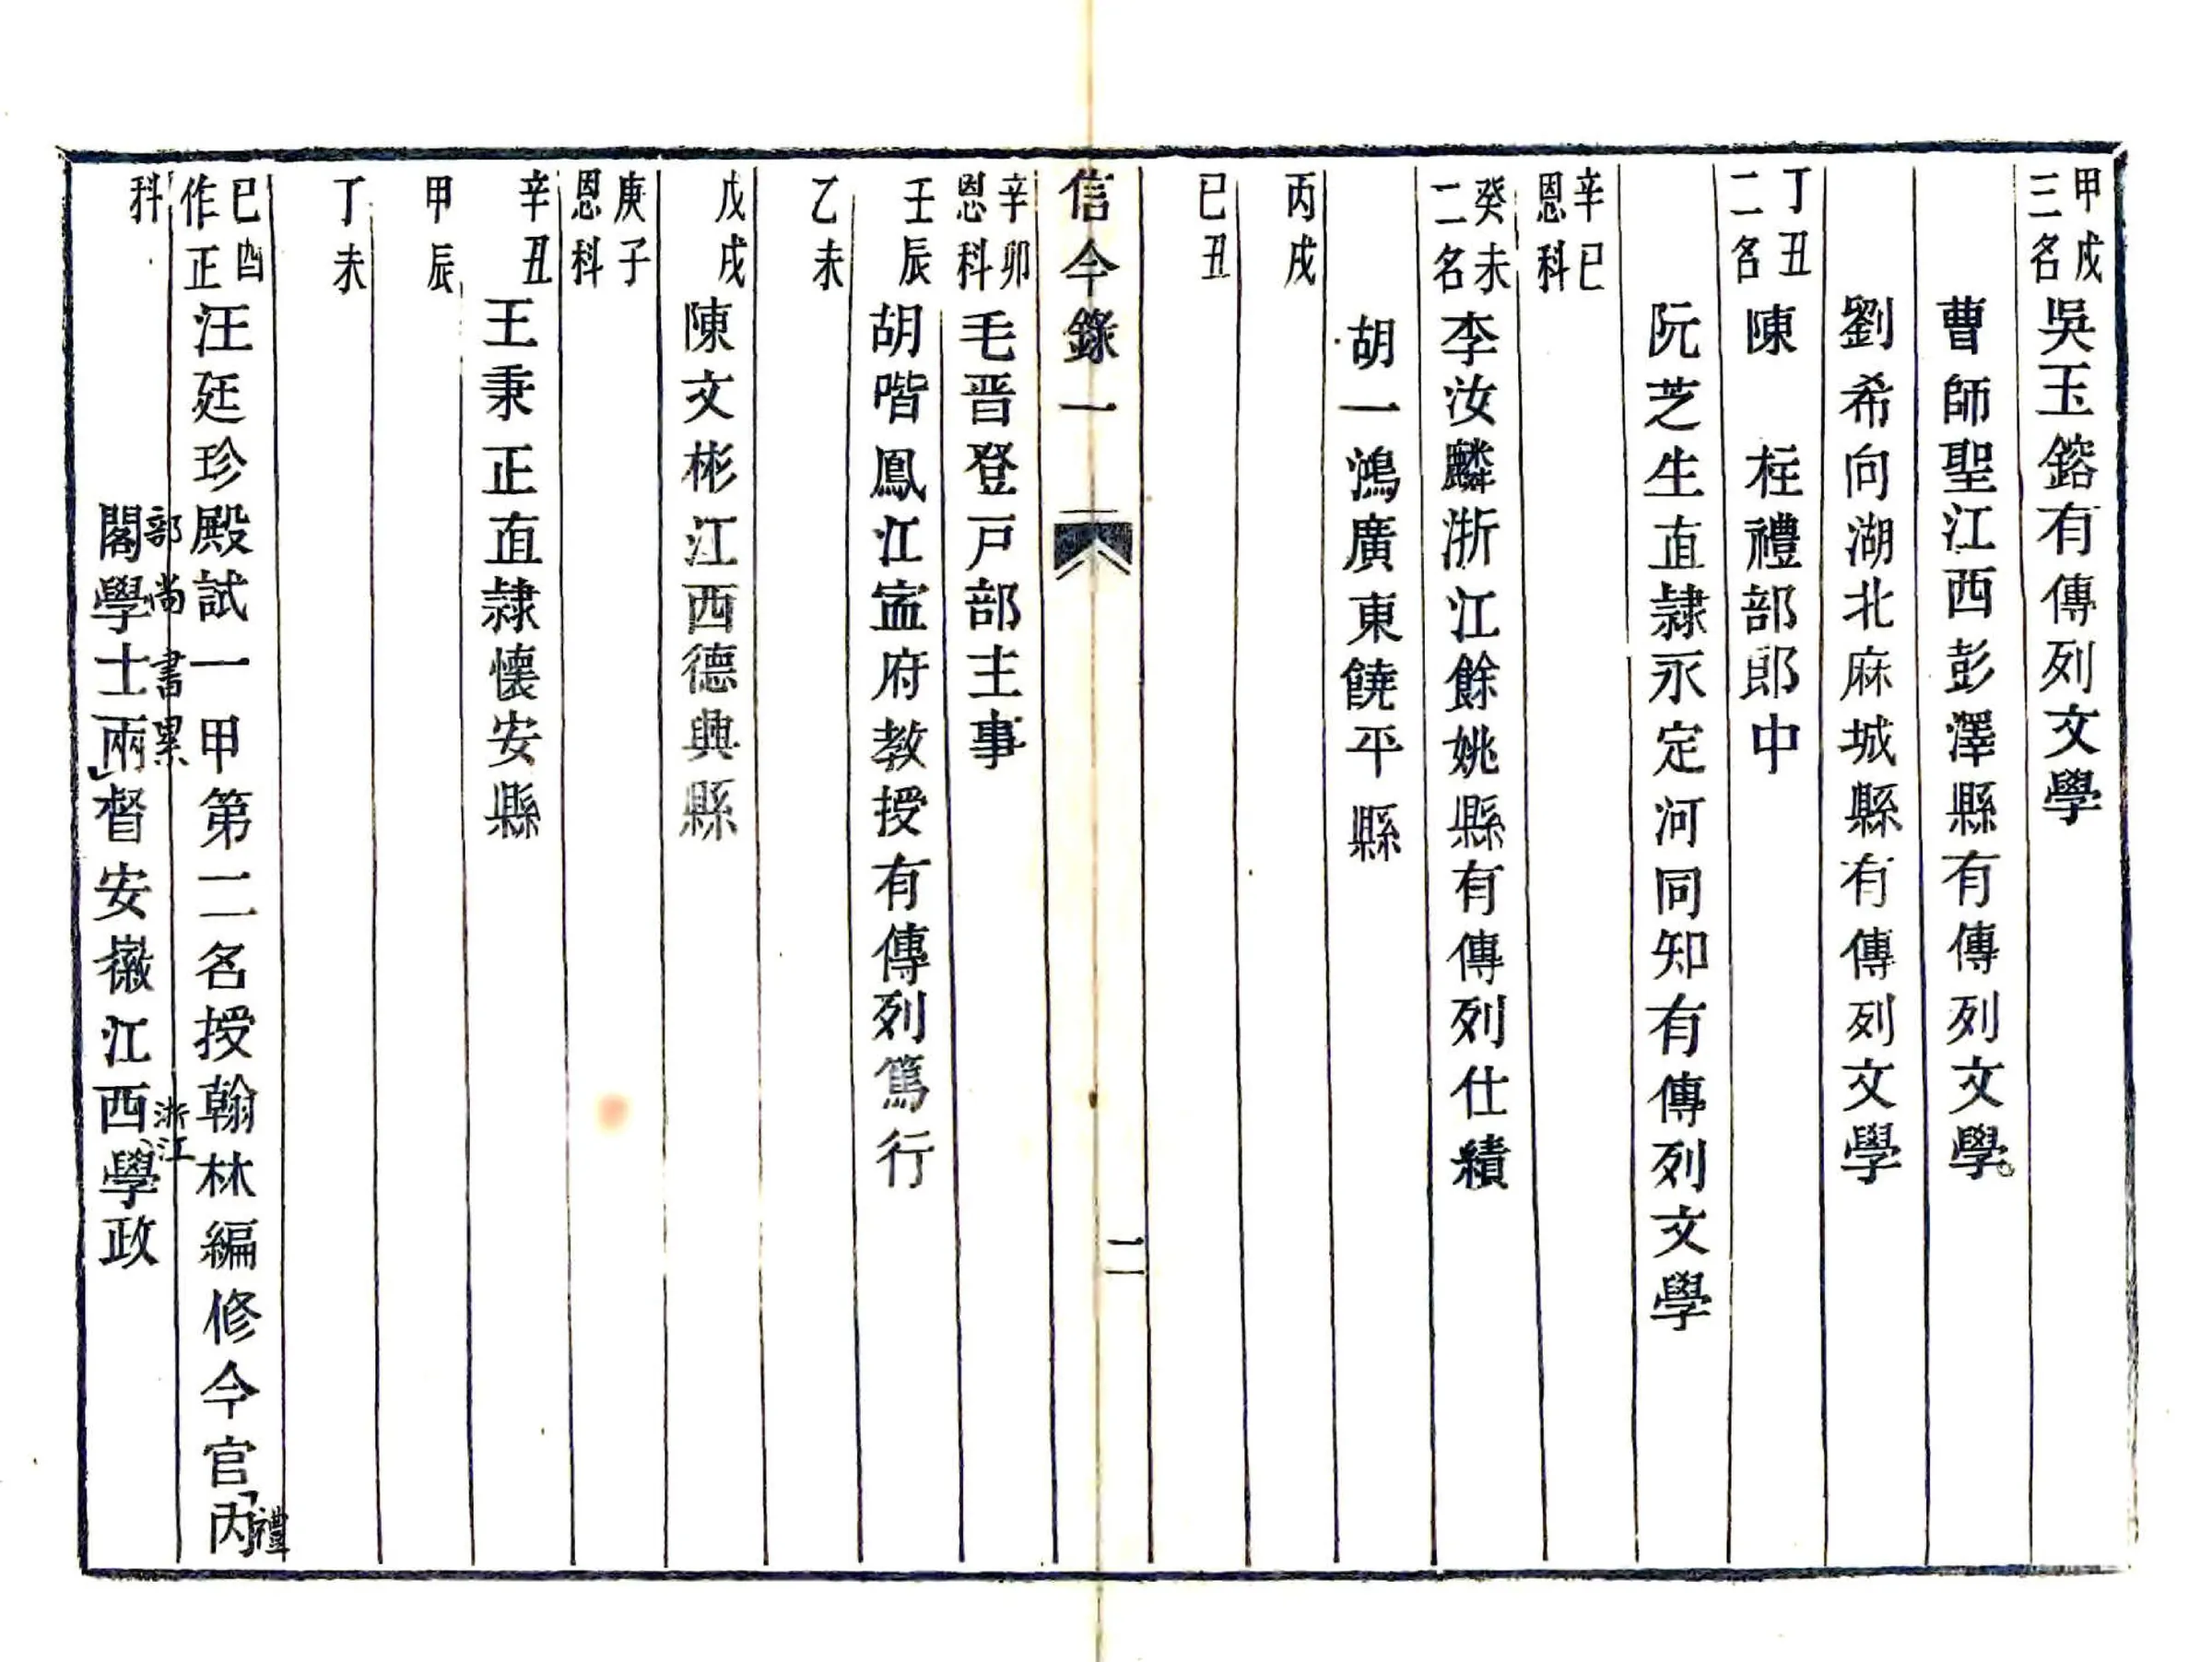 甲戌三名吳玉鎔有傳列文學
曹師聖江西彭澤縣有傳列文學
劉希向湖北麻城縣有傳列文學
丁丑二名陳　柱禮部郎中
阮芝生直隸永定河同知有傳列文學
辛巳恩科
癸未二名李汝麟浙江餘姚縣有傳列仕績
胡一鴻廣東饒平縣
丙戌
己丑
信今錄一　二
辛卯恩科毛晋登戸部主事
壬辰胡喈鳳江寍府教授有傳列篤行
乙未
戊戌陳文彬江西德興縣
庚子恩科
辛丑王秉正直隸懷安縣
甲辰
丁未
己酉作正汪廷珍殿試一甲第二名授翰林編修今官丙
禮
科閣學士兩督安徽江西學政
部尚書累
浙江